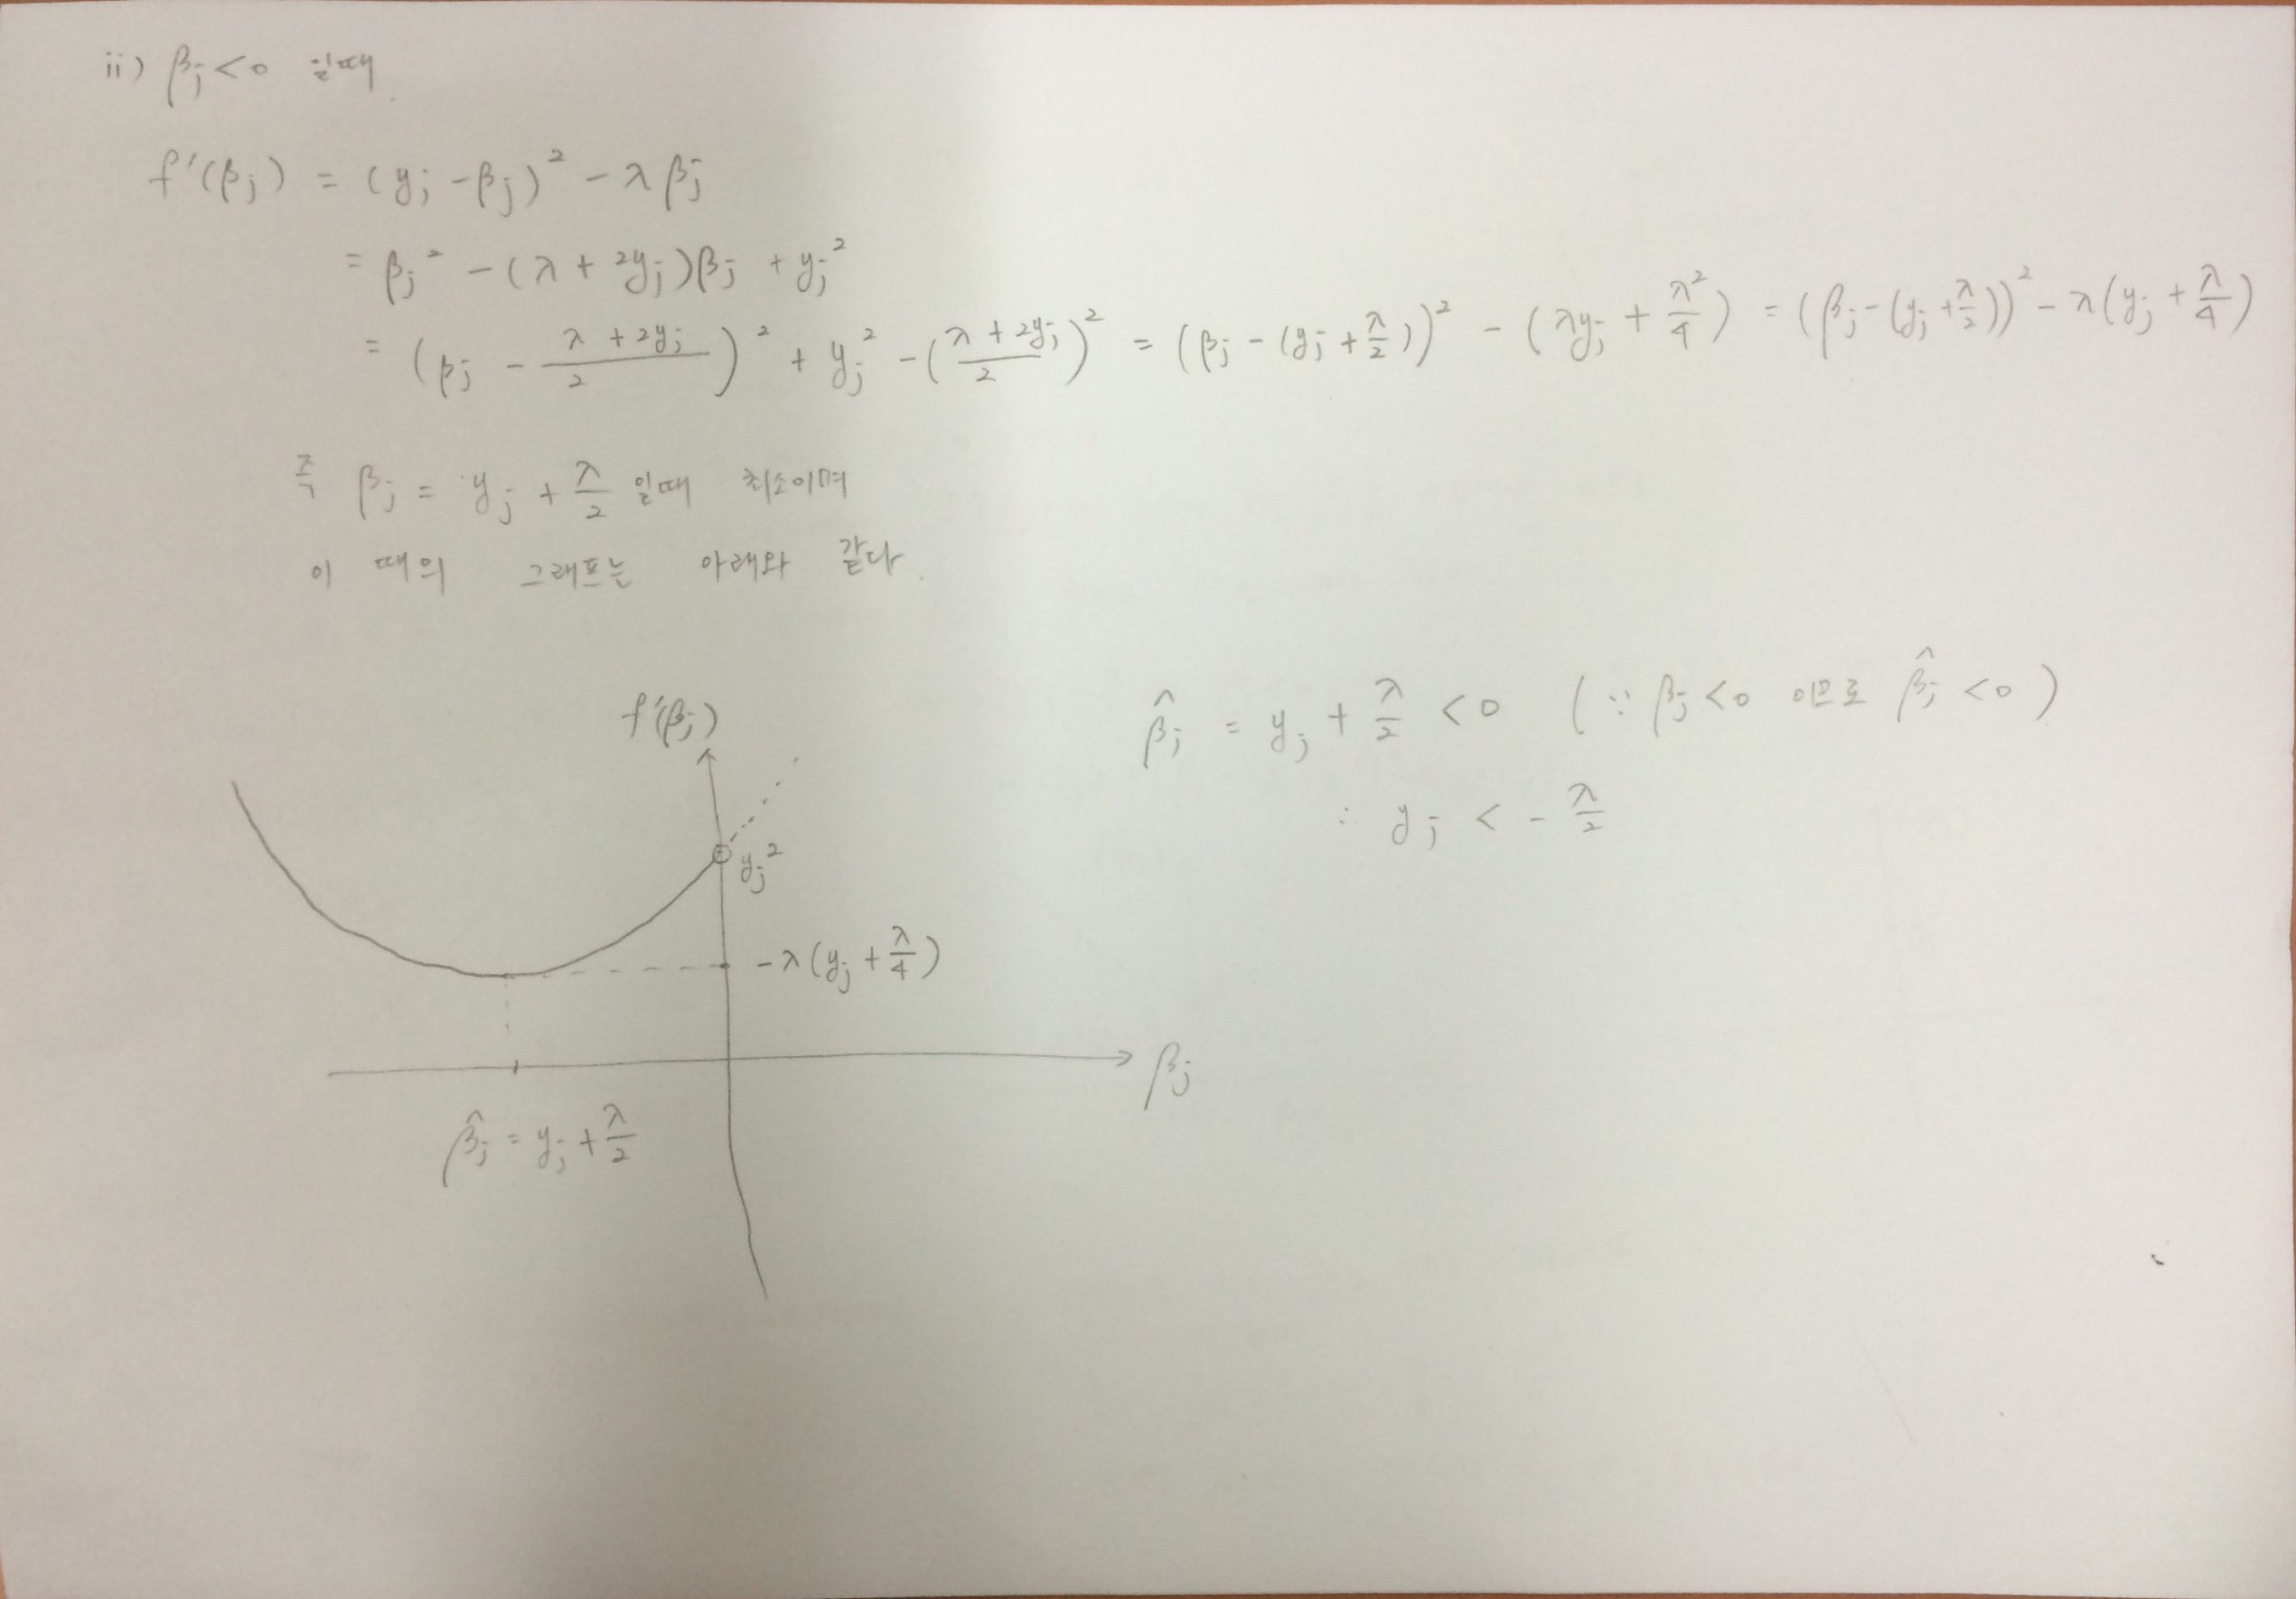 ii) βj < 0 일때
f'(βj) = (yj - βj)² - λβj
= βj² - (λ + 2yj)βj + yj²
= (βj - (λ + 2yj)/2)² + yj² - ((λ + 2yj)/2)² = (βj - (yj + λ/2))² - (λyj + λ²/4) = (βj - (yj + λ/2))² - λ(yj + λ/4)
즉 βj = yj + λ/2 일때 최소이며
이 때의 그래프는 아래와 같다.
f'(βj)
yj²
-λ(yj + λ/4)
βj
β̂j = yj + λ/2
β̂j = yj + λ/2 < 0 (∵ βj < 0 이므로 β̂j < 0)
∴ yj < - λ/2